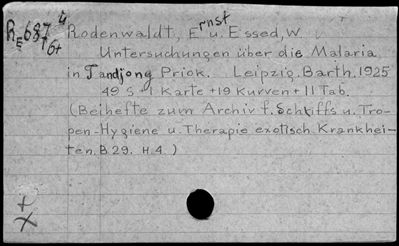 Rodenwaldt, Ernst u. Essed, W.
Untersuchungen über die Malaria
in Tandjong Priok. Leipzig. Barth. 1925
49 S + 1 Karte + 19 Kurven + 11 Tab.
(Beihefte zum Archiv f. Schiffs u. Tro-
pen-Hygiene u. Therapie exotisch. Krankhei-
ten. B. 29. H. 4.)